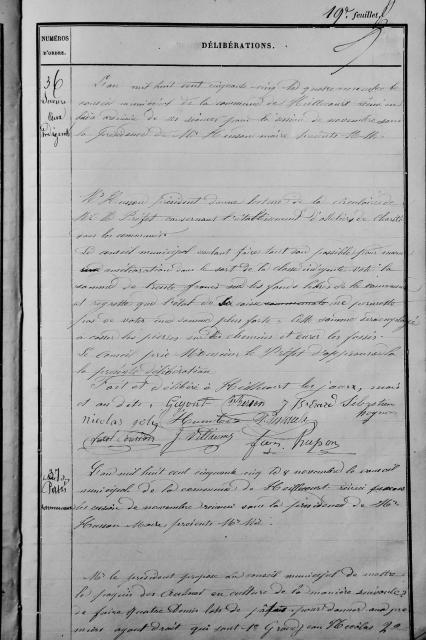 19e feuillet
NUMÉROS D'ORDRE.
DÉLIBÉRATIONS.
36
Secours
aux
Indigents
L'an mil huit cent cinquante cinq le quatre novembre le
conseil municipal de la commune de Heillecourt réuni au
lieu ordinaire de ses séances pour la session de novembre sous
la présidence de Mr Husson maire présents M.M.
Mr Husson président donne lecture de la circulaire de
Mr le Préfet concernant l'établissement d'ateliers de charité
dans les communes
Le conseil municipal voulant faire tout son possible pour
amélioration dans le sort de la classe indigente vote la
somme de trente francs sur les fonds libres de la commune
et regrette que l'état de la caisse ne permette
pas de voter une somme plus forte. Cette somme sera employée
à casser les pierres sur les chemins et curer les fossés.
Le Conseil prie Monsieur le Préfet d'approuver la
la présente délibération.
Fait et délibéré à Heillecourt les jour, mois
et an dits.
Nicolas
37
Patis
communaux
L'an mil huit cent cinquante cinq le 8 novembre le conseil
municipal de la commune de Heillecourt réuni
session de novembre sous la présidence de Mr
Husson Maire présents Mr Md.
Mr le président propose au conseil municipal de mettre
le paquis des en culture de la manière suivante
de faire quatre lots de patis pour donner aux pre
miers ayant droit qui sont 1° Nicolas 2°